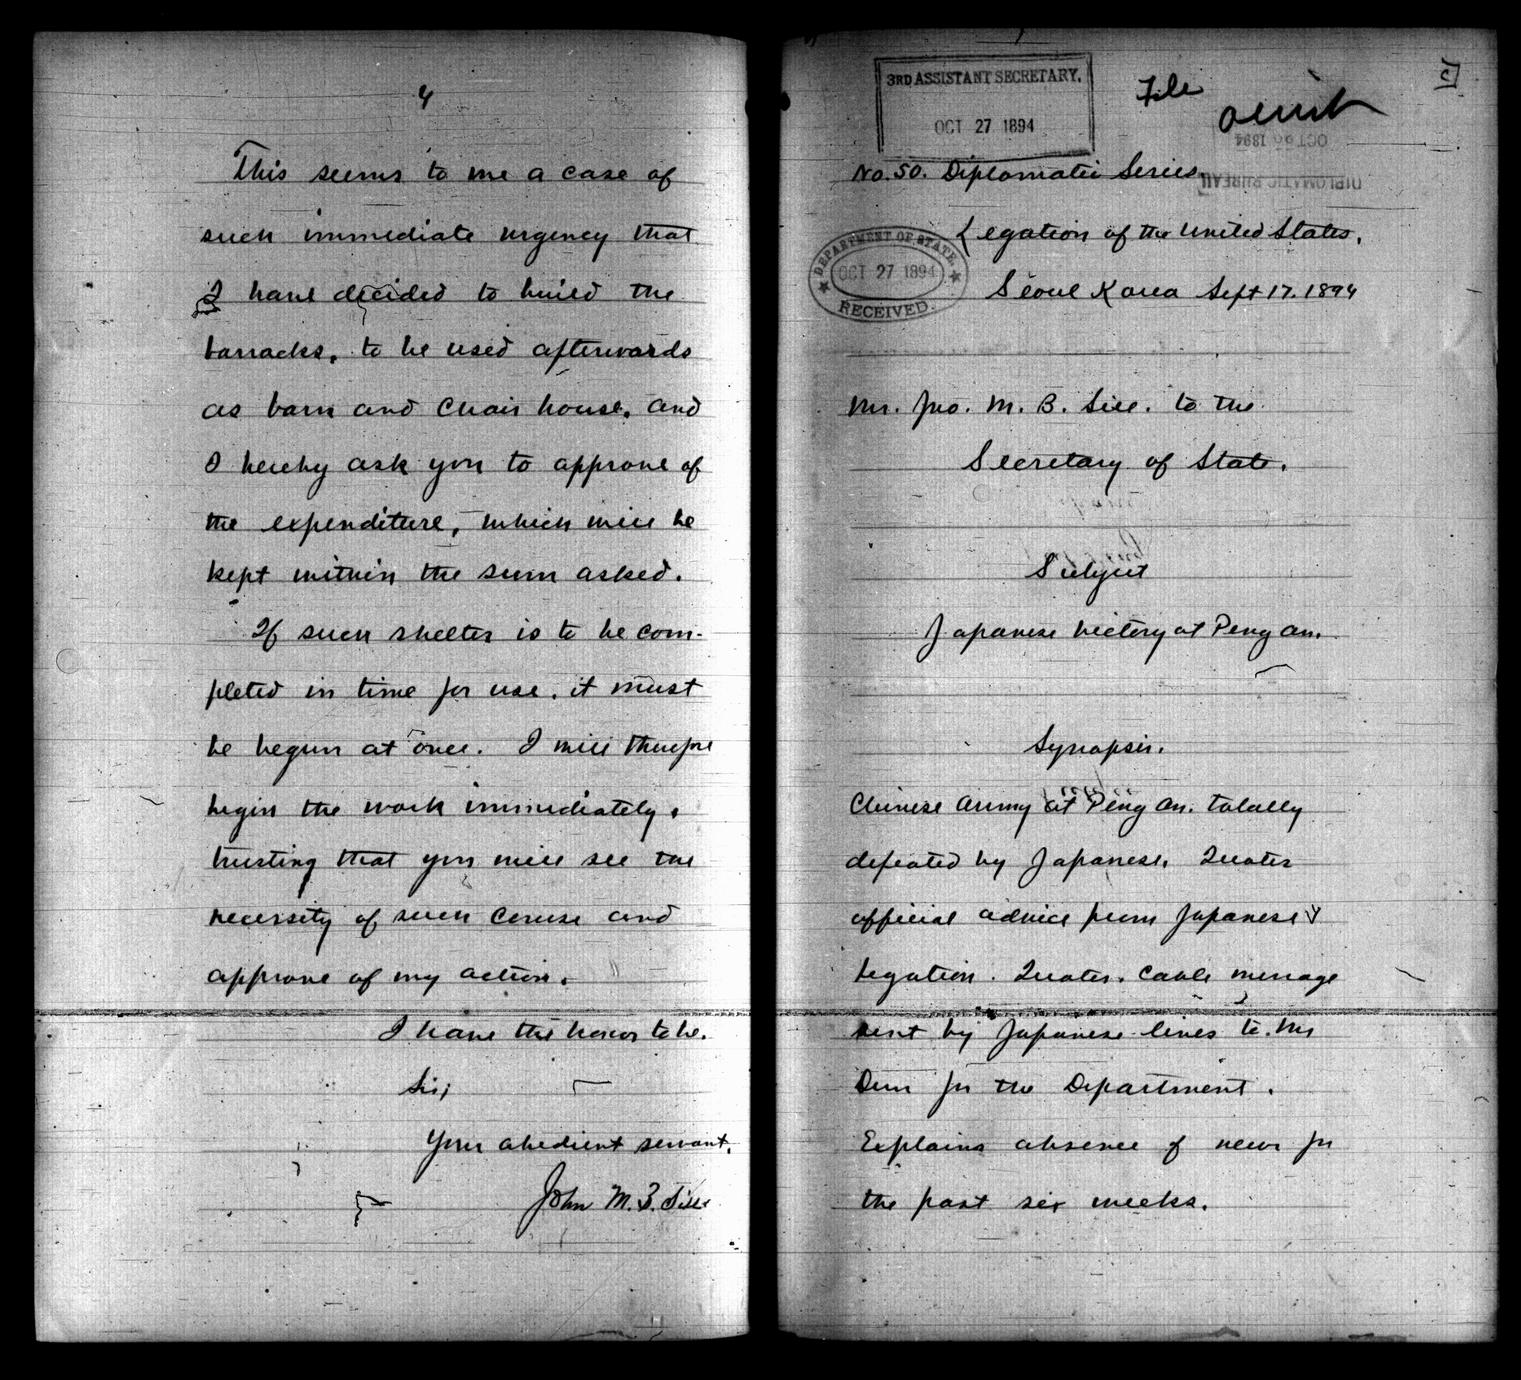 4
This seems to me a case of
such immediate urgency that
I have decided to build the
barracks, to be used afterwards
as barn and chair house, and
I hereby ask you to approve of
the expenditure, which will be
kept within the sum asked.
If such shelter is to be com-
pleted in time for use, it must
be begun at once. I will therefore
begin the work immediately,
trusting that you will see the
necessity of such course and
approve of my action.
I have the honor to be,
Sir,
Your obedient servant,
John M. B. Sill
3RD ASSISTANT SECRETARY.
OCT 27 1894
File
OCT 26 1894
DIPLOMATIC BUREAU
No. 50. Diplomatic Series.
Legation of the United States.
DEPARTMENT OF STATE.
OCT 27 1894
RECEIVED.
Seoul Korea Sept 17. 1894
Mr. Jno. M. B. Sill. to the
Secretary of State.
Subject
Japanese victory at Peng an.
Synopsis.
Chinese army at Peng an. totally
defeated by Japanese. Quotes
official advice from Japanese
Legation. Quotes. cable message
sent by Japanese lines to Mr
Dun for the Department.
Explains absence of news for
the past six weeks.